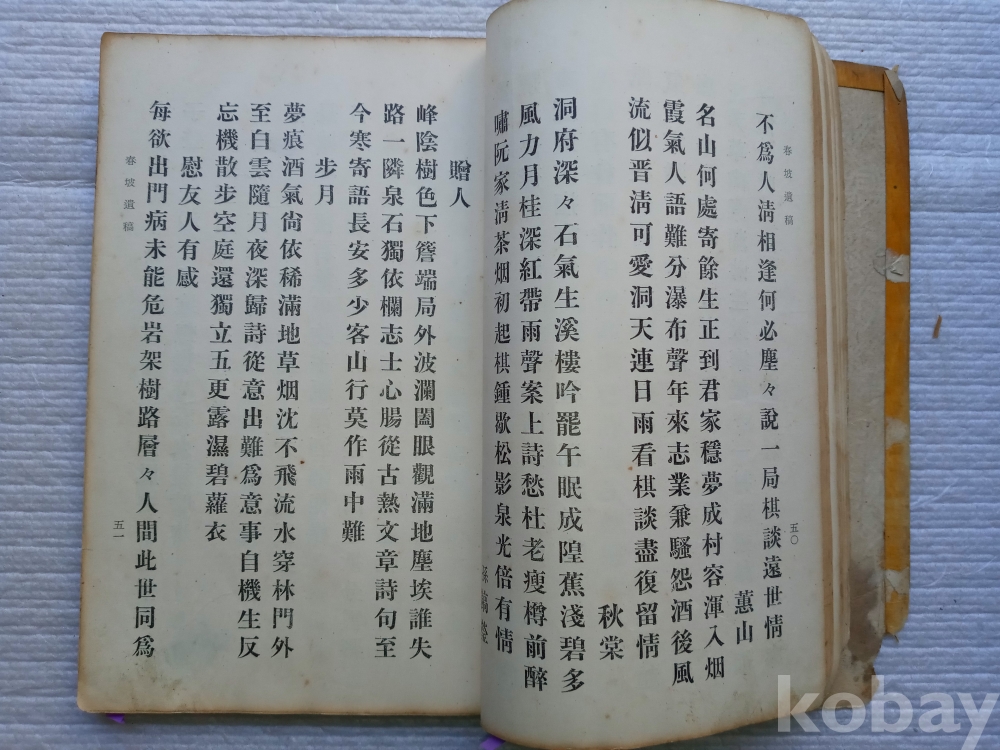 春坡遺稿
五〇
不爲人淸相逢何必塵々說一局棋談遠世情
蕙山
名山何處寄餘生正到君家穩夢成村容渾入烟
霞氣人語難分瀑布聲年來志業兼騷怨酒後風
流似晋淸可愛洞天連日雨看棋談盡復留情
秋棠
洞府深々石氣生溪樓吟罷午眠成隍蕉淺碧多
風力月桂深紅帶雨聲案上詩愁杜老瘦樽前醉
嘯阮家淸茶烟初起棋鍾歇松影泉光倍有情
贈人
峰陰樹色下簷端局外波瀾闔眼觀滿地塵埃誰失
路一隣泉石獨依欄志士心腸從古熱文章詩句至
今寒寄語長安多少客山行莫作雨中難
步月
夢痕酒氣尙依稀滿地草烟沈不飛流水穿林門外
至白雲隨月夜深歸詩從意出難爲意事自機生反
忘機散步空庭還獨立五更露濕碧蘿衣
慰友人有感
每欲出門病未能危岩架樹路層々人間此世同爲
春坡遺稿
五一
kobay